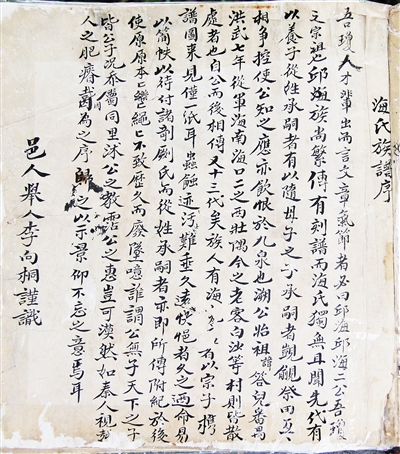 海氏族譜序
吾瓊人才輩出而言文章氣節者必曰邱海邱海二公吾瓊
之宗祖也邱姓族尚繁傳有刻譜而海氏獨無且聞先代有
以養子從姓承嗣者有以隨母子之子承嗣者覬覦祭田互
相爭控使公知之應亦飲恨於九泉也溯公始祖諱答兒番禺
洪武七年從軍海南海口二之西壯隅今之老衾白沙等村則皆散
處者也自公而後相傳又十三代矣族人有海 有以宗子攜
譜圖來見僅一紙耳蟲蝕迹污難垂久遠悞悒者久之迺命易
以簡帙以待付諸剞劂氏而從姓承嗣者亦即所傳附紀於後
使原原本本繼繼繩繩不致歷久而廢墜噫誰謂公無子天下之子
皆公子況忝屬同里沐公之教霑公之惠豈可漠然如秦人視越
人之肥瘠哉為之序歸之以示景仰不忘之意焉耳
邑人舉人李向桐謹識